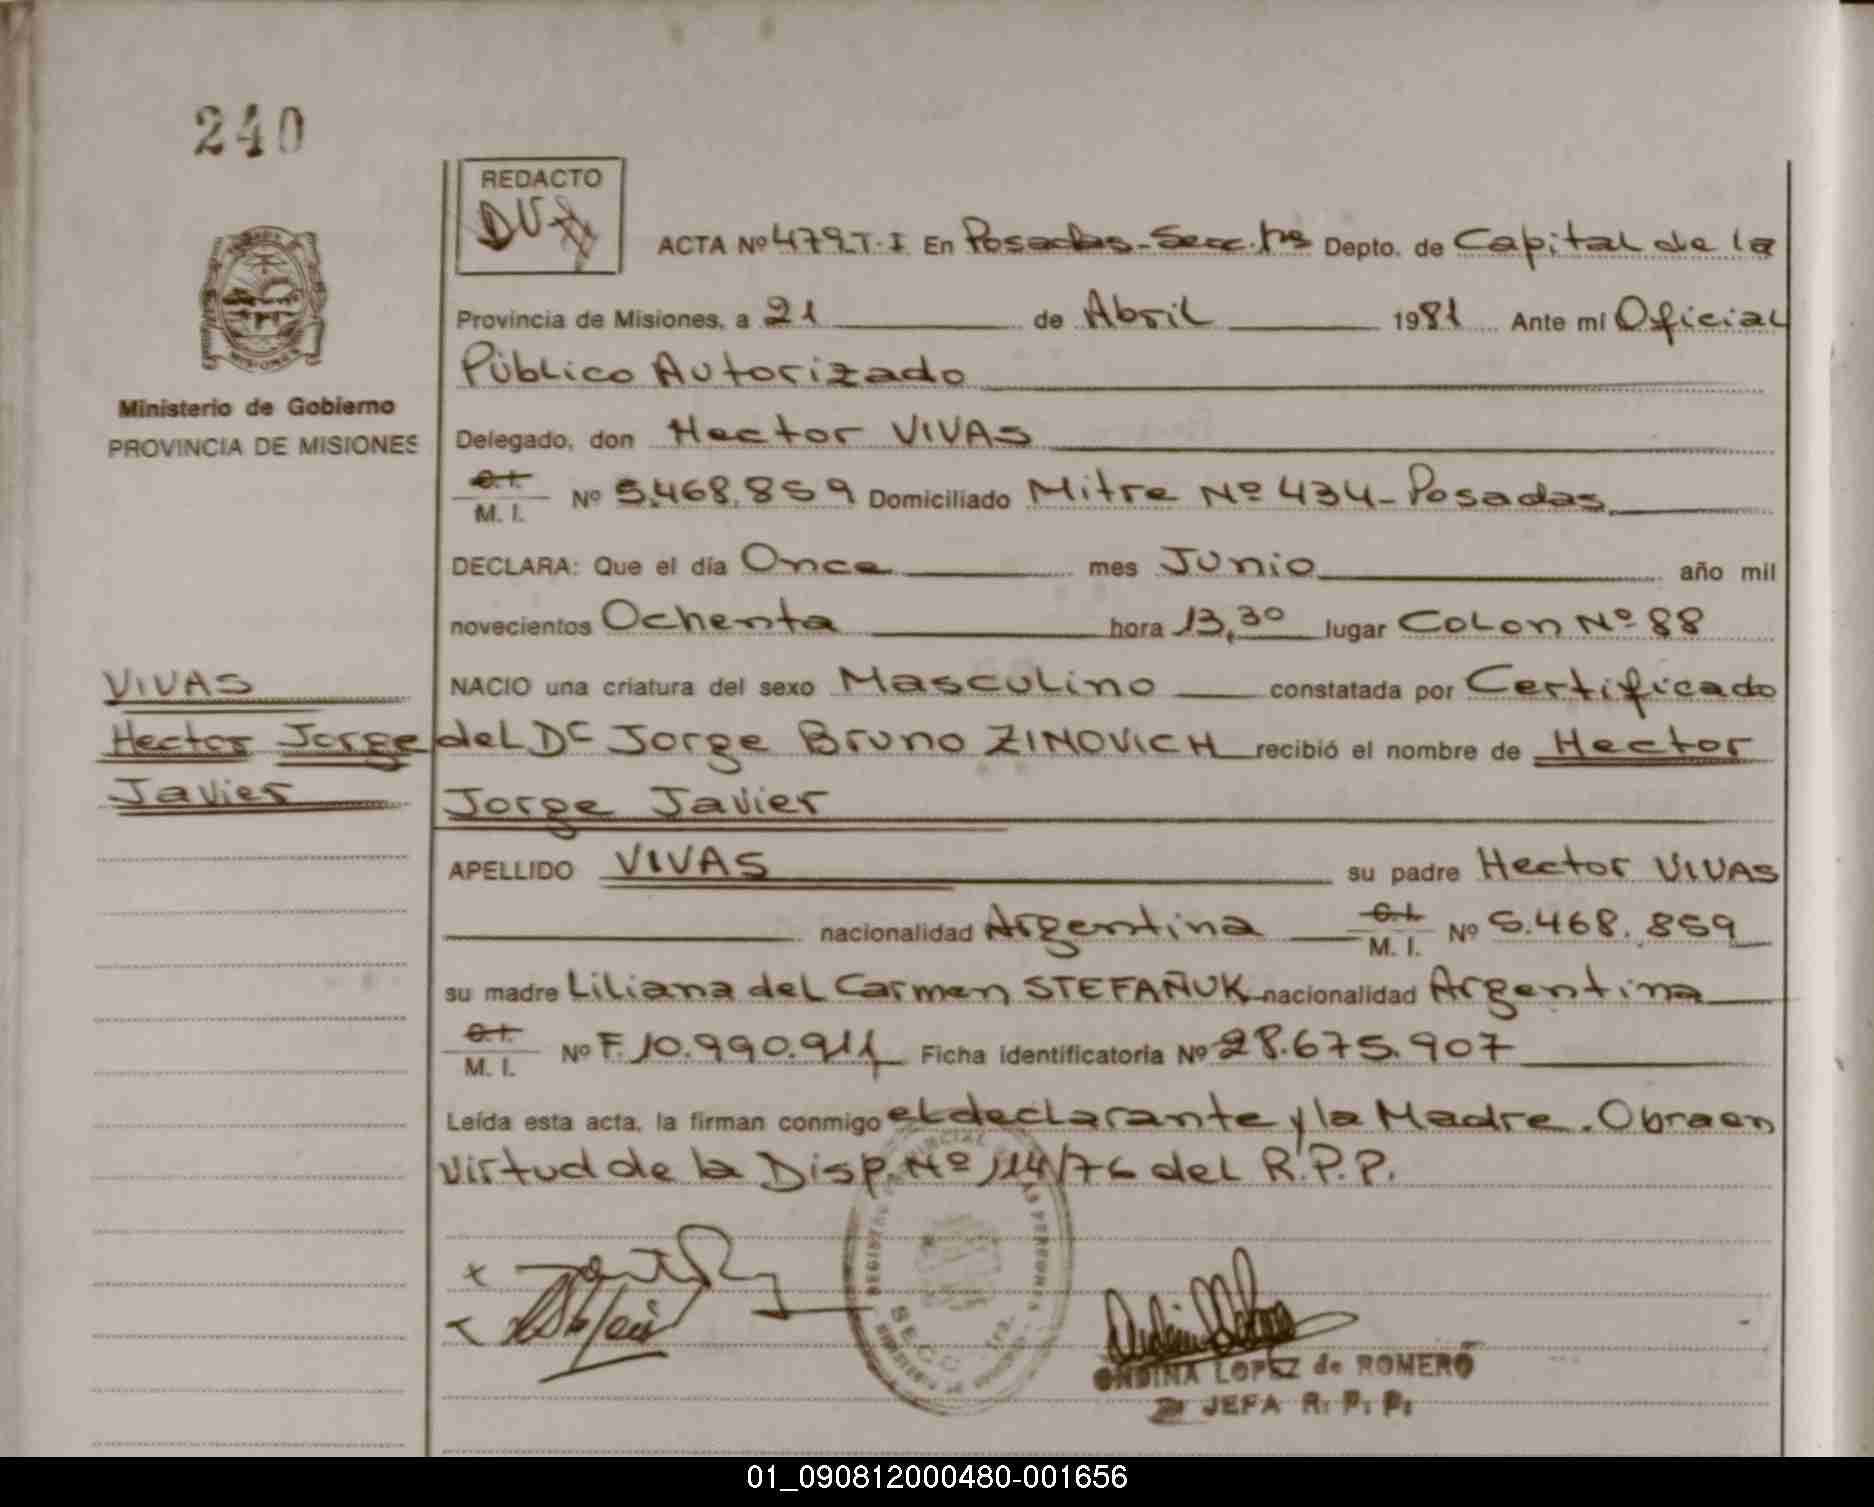 240
REDACTO
ACTA Nº 479.T.I. En Posadas-Secc.1ra Depto. de Capital de la
Provincia de Misiones, a 21 de Abril 1981 Ante mí Oficial
Público Autorizado
Ministerio de Gobierno
PROVINCIA DE MISIONES
Delegado, don Hector VIVAS
C.I.
M. I. Nº 5.468.859 Domiciliado Mitre Nº 434-Posadas
DECLARA: Que el día Once mes Junio año mil
novecientos Ochenta hora 13,30 lugar Colon Nº 88
VIVAS
Hector Jorge
Javier
NACIO una criatura del sexo Masculino constatada por Certificado
del Dr Jorge Bruno ZINOVICH recibió el nombre de Hector
Jorge Javier
APELLIDO VIVAS su padre Hector VIVAS
nacionalidad Argentina C.I. M. I. Nº 5.468.859
su madre Liliana del Carmen STEFAÑUK nacionalidad Argentina
C.I.
M. I. Nº F.10.990.911 Ficha identificatoria Nº 28.675.907
Leída esta acta, la firman conmigo el declarante y la Madre. Obra en
virtud de la Disp. Nº 114/76 del R.P.P.
REGISTRO PROVINCIAL DE LAS PERSONAS
SECC. 1ra.
ONDINA LOPEZ de ROMERO
JEFA R. P. P.
01_090812000480-001656